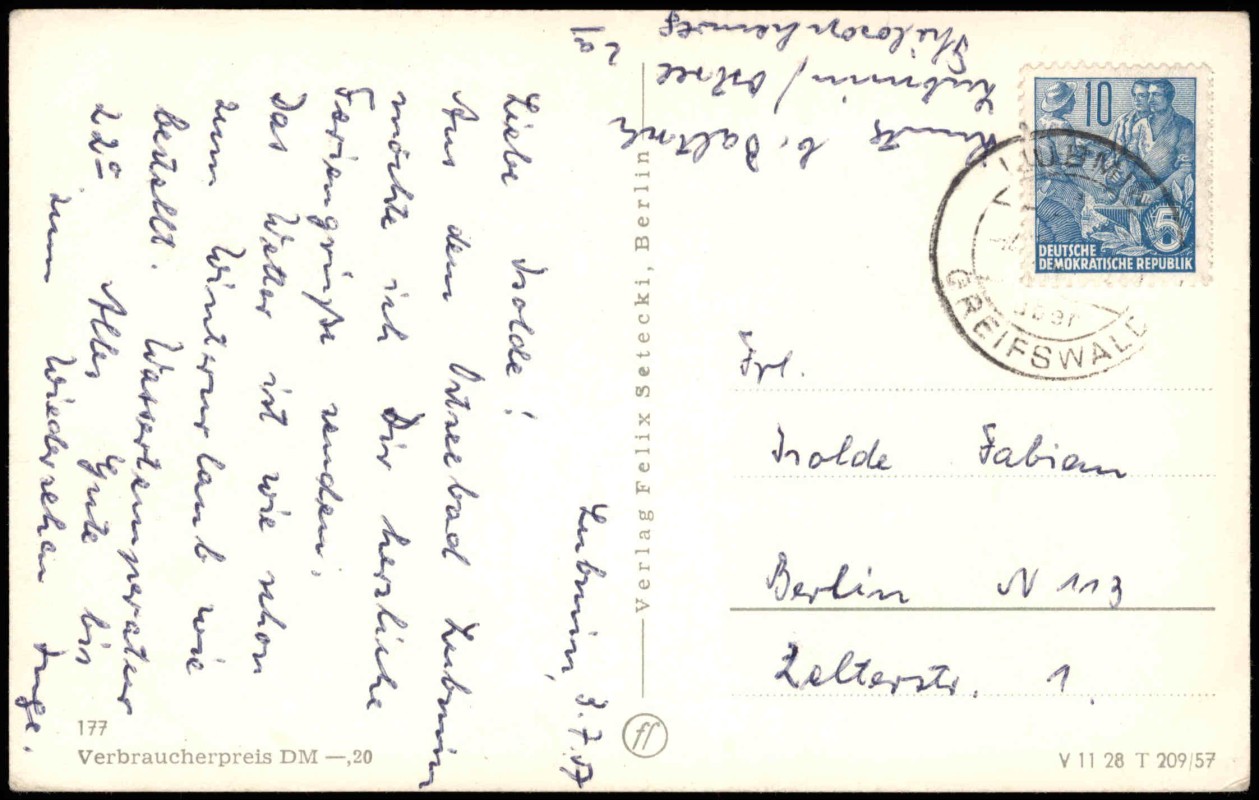 Lubmin, 3.7.57
Liebe Isolde!
Aus dem Ostseebad Lubmin
möchte ich Dir herzliche
Feriengrüße senden.
Das Wetter ist wie schon
zum Winterurlaub wie
bestellt. Wassertemperatur
22° Alles Gute bis
zum Wiedersehen Inge.
Lubmin/Ostsee
Philosophenweg
Verlag Felix Setecki, Berlin
10
5
DEUTSCHE
DEMOKRATISCHE REPUBLIK
LUBMIN
GREIFSWALD
Frl.
Isolde Fabian
Berlin N 113
Zelterstr. 1.
177
Verbraucherpreis DM —,20
ff
V 11 28 T 209/57